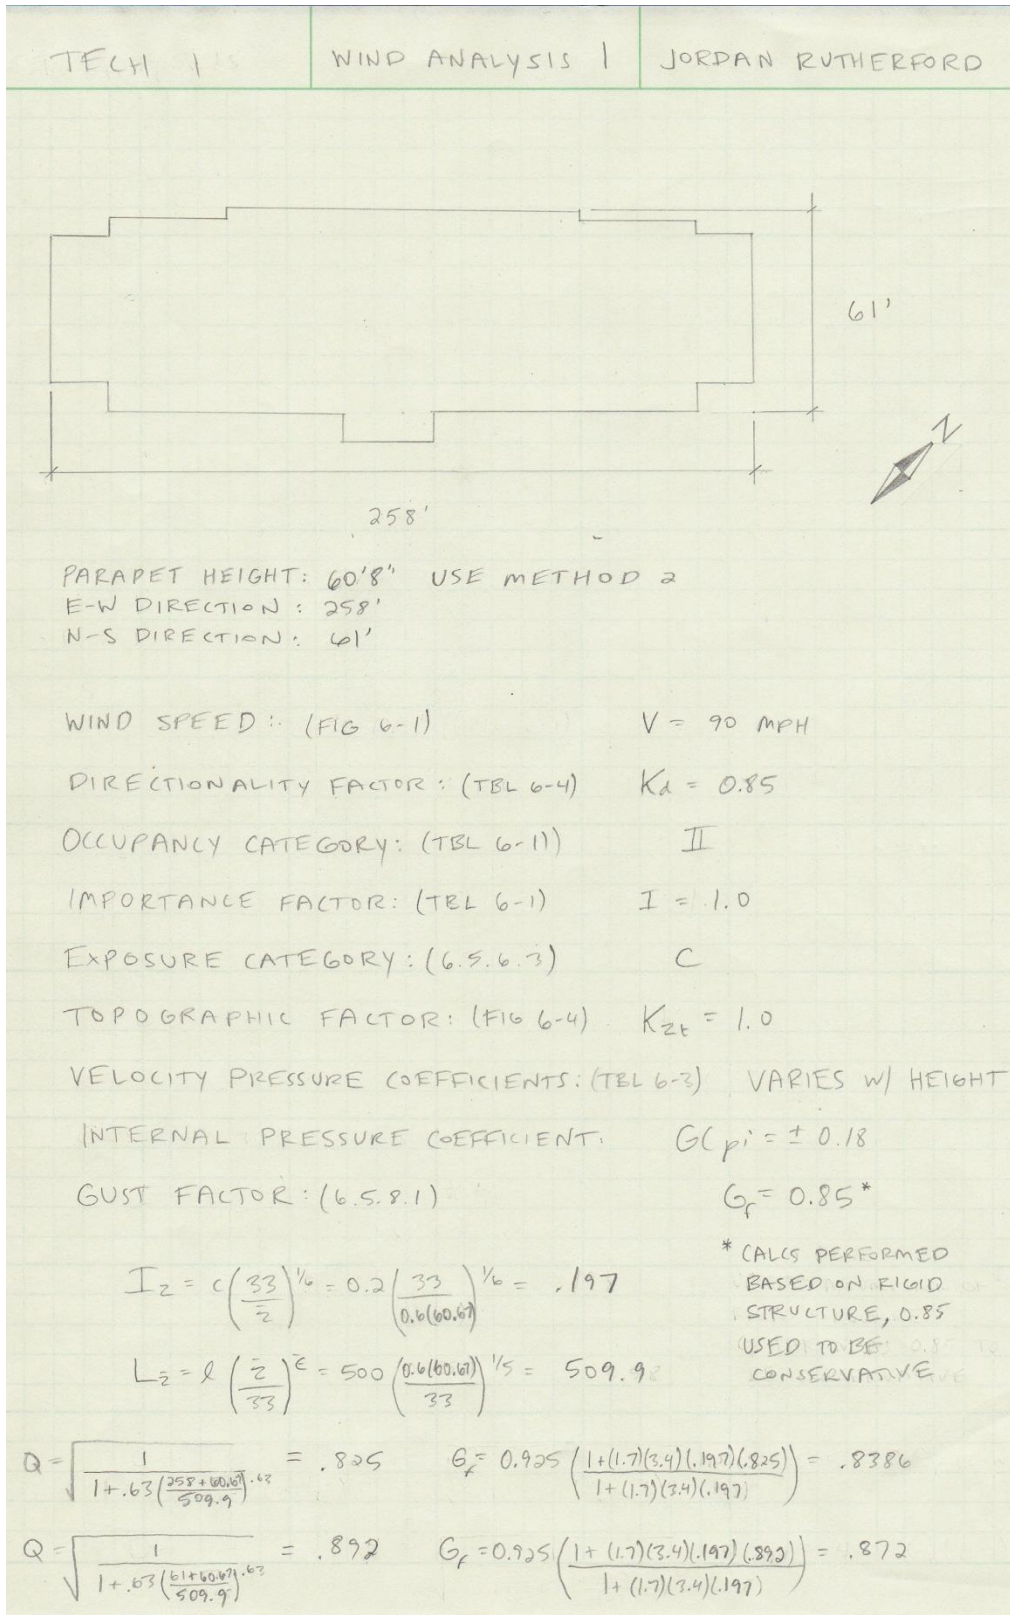 TECH 1
WIND ANALYSIS 1
JORDAN RUTHERFORD
61'
N
258'
PARAPET HEIGHT: 60'8" USE METHOD 2
E-W DIRECTION: 258'
N-S DIRECTION: 61'
WIND SPEED: (FIG 6-1) V = 90 MPH
DIRECTIONALITY FACTOR: (TBL 6-4) Kd = 0.85
OCCUPANCY CATEGORY: (TBL 6-1)) II
IMPORTANCE FACTOR: (TBL 6-1) I = 1.0
EXPOSURE CATEGORY: (6.5.6.3) C
TOPOGRAPHIC FACTOR: (FIG 6-4) Kzt = 1.0
VELOCITY PRESSURE COEFFICIENTS: (TBL 6-3) VARIES W/ HEIGHT
INTERNAL PRESSURE COEFFICIENT: GCpi = ± 0.18
GUST FACTOR: (6.5.8.1) Gf = 0.85*
* CALCS PERFORMED
BASED ON RIGID
STRUCTURE, 0.85
USED TO BE
CONSERVATIVE
Iz = c(33/z̄)^1/6 = 0.2(33/0.6(60.67))^1/6 = .197
Lz̄ = ℓ(z̄/33)^ε̄ = 500(0.6(60.67)/33)^1/5 = 509.9
Q = √(1/(1+.63((258+60.67)/509.9)^.63)) = .825 Gf = 0.925((1+(1.7)(3.4)(.197)(.825))/(1+(1.7)(3.4)(.197))) = .8386
Q = √(1/(1+.63((61+60.67)/509.9)^.63)) = .892 Gf = 0.925((1+(1.7)(3.4)(.197)(.892))/(1+(1.7)(3.4)(.197))) = .872